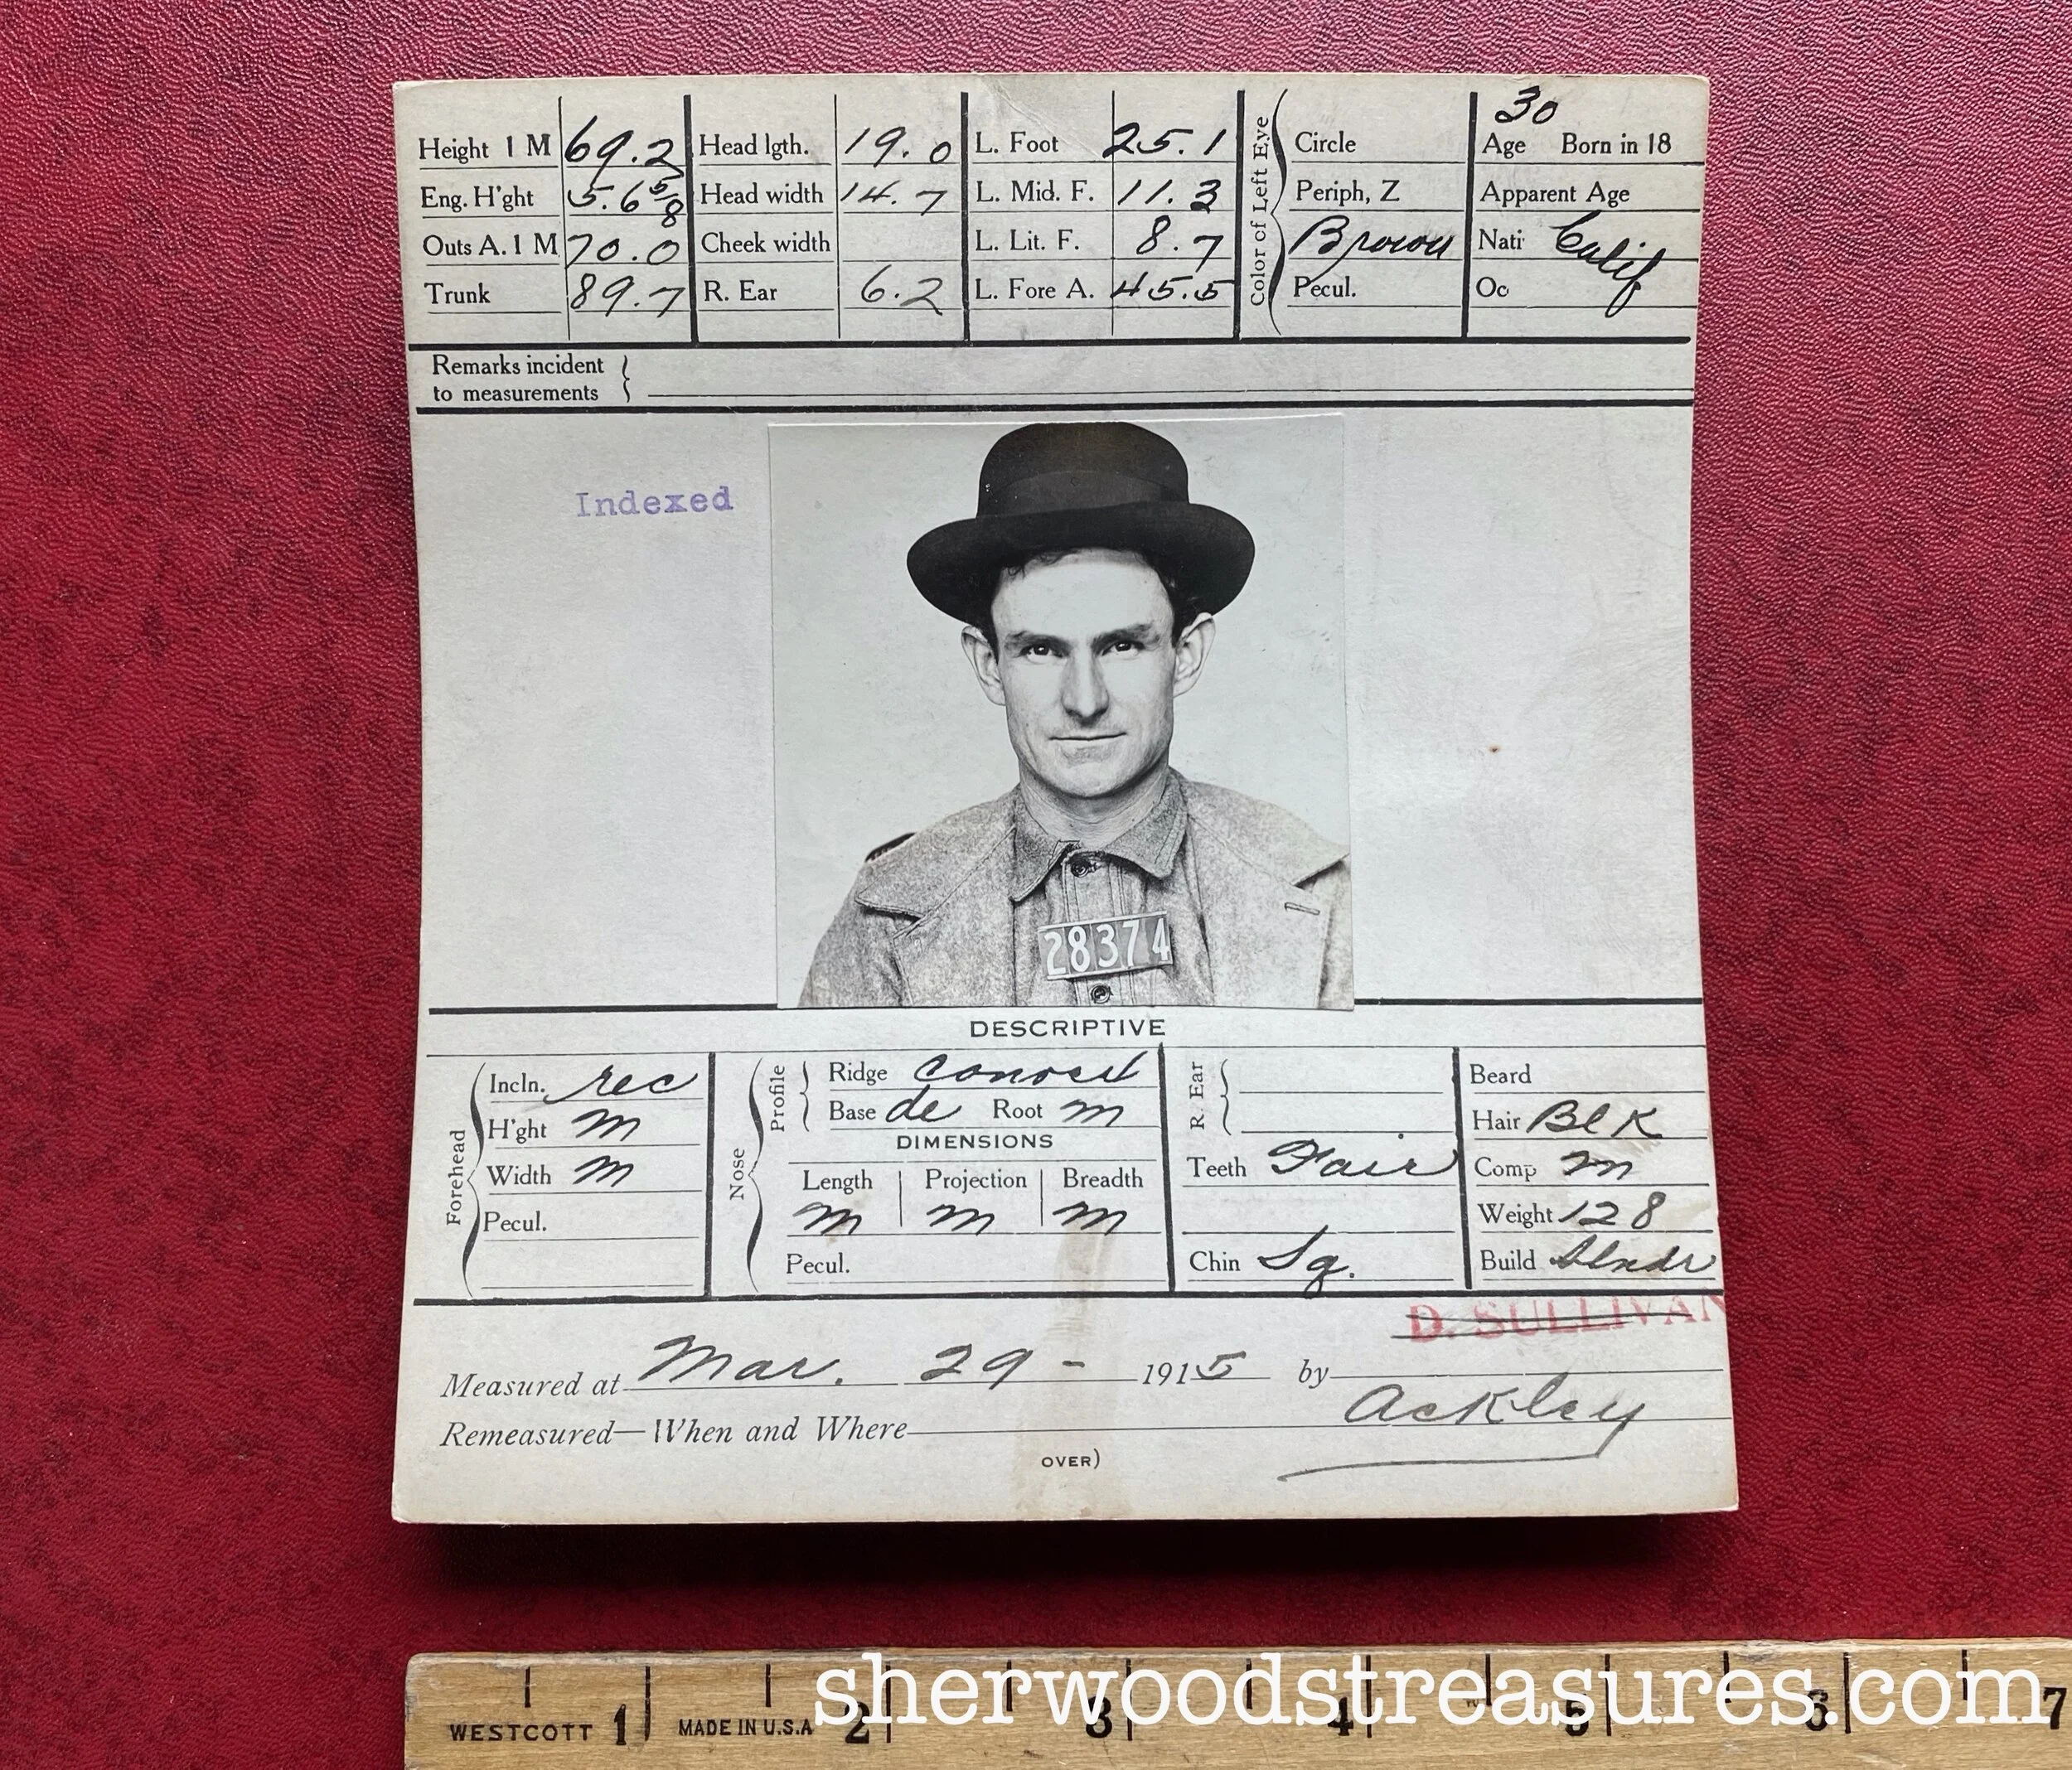 30
Height 1 M 69.2 Head lgth. 19.0 L. Foot 25.1 Circle Age Born in 18
Eng. H'ght 5.6 5/8 Head width 14.7 L. Mid. F. 11.3 Periph, Z Apparent Age
Outs A. 1 M 70.0 Cheek width L. Lit. F. 8.7 Brown Nati Calif
Trunk 89.7 R. Ear 6.2 L. Fore A. 45.5 Pecul. Oc
Color of Left Eye
Remarks incident
to measurements
Indexed
28374
DESCRIPTIVE
Forehead
Incln. rec
H'ght m
Width m
Pecul.
Nose
Profile
Ridge
Base de Root m
DIMENSIONS
Length Projection Breadth
m m m
Pecul.
R. Ear
Teeth Fair
Chin Sq.
Beard
Hair Blk
Comp m
Weight 128
Build Slndr
D. SULLIVAN
Measured at Mar. 29 - 1915 by
Ackley
Remeasured—When and Where
OVER)
WESTCOTT 1 MADE IN U.S.A 2 3 4 5 6 7
sherwoodstreasures.com